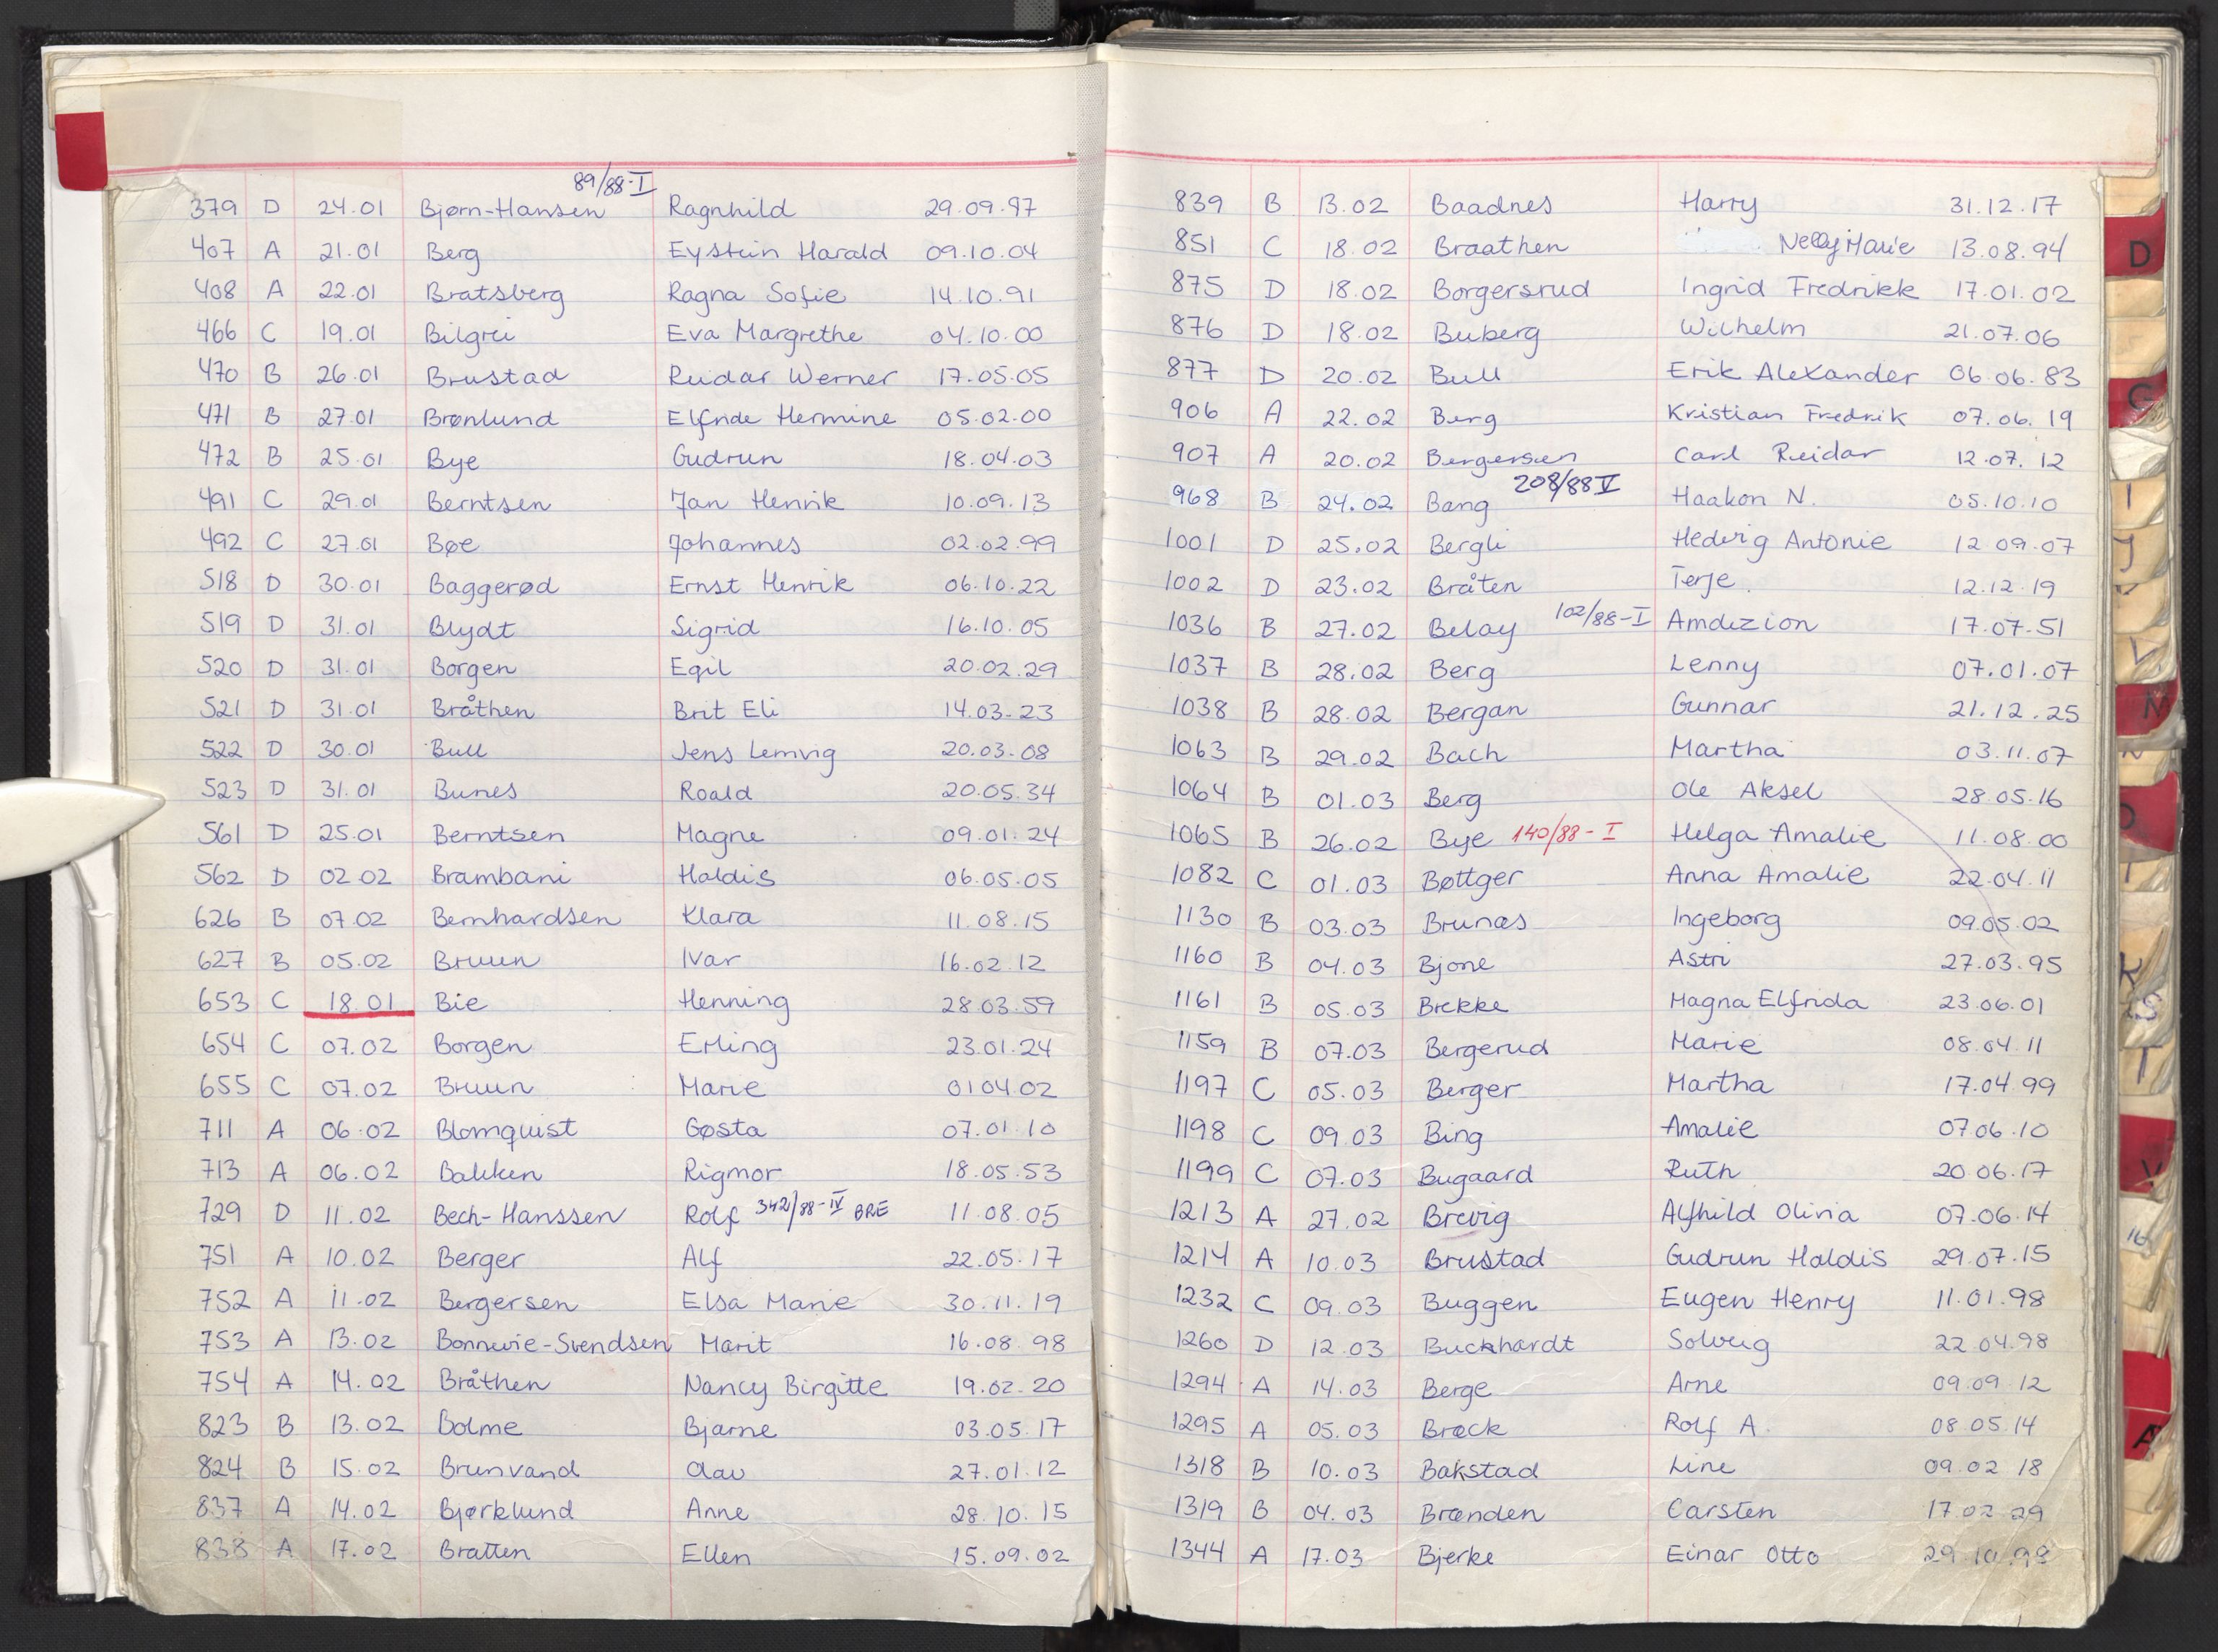 89/88-I
379 D 24.01 Bjørn-Hansen Ragnhild 29.09.97
407 A 21.01 Berg Eystein Harald 09.10.04
408 A 22.01 Bratsberg Ragna Sofie 14.10.91
466 C 19.01 Bilgrei Eva Margrethe 04.10.00
470 B 26.01 Brustad Reidar Werner 17.05.05
471 B 27.01 Brønlund Elfride Hermine 05.02.00
472 B 25.01 Bye Gudrun 18.04.03
491 C 29.01 Berntsen Jan Henrik 10.09.13
492 C 27.01 Bøe Johannes 02.02.99
518 D 30.01 Baggerød Ernst Henrik 06.10.22
519 D 31.01 Blydt Sigrid 16.10.05
520 D 31.01 Borgen Egil 20.02.29
521 D 31.01 Bråthen Brit Eli 14.03-23
522 D 30.01 Bull Jens Lemvig 20.03-08
523 D 31.01 Bunes Roald 20.05.34
561 D 25.01 Berntsen Magne 09.01.24
562 D 02.02 Brambani Haldis 06.05.05
626 B 07.02 Bernhardsen Klara 11.08.15
627 B 05.02 Bruun Ivar 16.02.12
653 C 18.01 Bie Henning 28.03.59
654 C 07.02 Borgen Erling 23.01.24
655 C 07.02 Bruun Marie 01 04.02
711 A 06.02 Blomquist Gøsta 07.01.10
713 A 06.02 Bakken Rigmor 18.05.53
729 D 11.02 Bech-Hanssen Rolf 342/88-IV BRE 11.08.05
751 A 10.02 Berger Alf 22.05.17
752 A 11.02 Bergersen Elsa Marie 30.11.19
753 A 13.02 Bonnevie-Svendsen Marit 16.08.98
754 A 14.02 Bråthen Nancy Birgitte 19.02.20
823 B 13.02 Bolme Bjarne 03.05.17
824 B 15.02 Brunvand Olav 27.01.12
837 A 14.02 Bjørklund Anne 28.10.15
838 A 17.02 Bratten Ellen 15.09.02
839 B 13.02 Baadnes Harry 31.12.17
851 C 18.02 Braathen Nelly Marie 13.08.94
875 D 18.02 Borgersrud Ingrid Fredrikk 17.01.02
876 D 18.02 Buberg Wilhelm 21.07.06
877 D 20.02 Bull Erik Alexander 06.06.83
906 A 22.02 Berg Kristian Fredrik 07.06.19
907 A 20.02 Bergersen Carl Reidar 12.07.12
208/88 V
968 B 24.02 Bang Haakon N. 05.10.10
1001 D 25.02 Bergli Hedvig Antonie 12 09.07
1002 D 23.02 Bråten Terje 12.12.19
1036 B 27.02 Belay 102/88-I Amdezion 17.07.51
1037 B 28.02 Berg Lenny 07.01.07
1038 B 28.02 Bergan Gunnar 21.12.25
1063 B 29.02 Bach Martha 03.11.07
1064 B 01.03 Berg Ole Aksel 28.05.16
1065 B 26.02 Bye 140/88-I Helga Amalie 11.08.00
1082 C 01.03 Bøttger Anna Amalie 22.04.11
1130 B 03.03 Brunæs Ingeborg 09.05.02
1160 B 04.03 Bjone Astri 27.03.95
1161 B 05.03 Brekke Magna Elfrida 23.06.01
1159 B 07.03 Bergerud Marie 08.04.11
1197 C 05.03 Berger Martha 17.04.99
1198 C 09.03 Bing Amalie 07.06.10
1199 C 07.03 Bugaard Ruth 20.06.17
1213 A 27.02 Brevig Alfhild Olivia 07.06.14
1214 A 10.03 Brustad Gudrun Haldis 29.07.15
1232 C 09.03 Buggen Eugen Henry 11.01.98
1260 D 12.03 Buckhardt Solveig 22.04.98
1294 A 14.03 Berge Arne 09.09.12
1295 A 05.03 Brøck Rolf A. 08.05.14
1318 B 10.03 Bakstad Line 09.02 18
1319 B 04.03 Brænden Carsten 17.02.29
1344 A 17.03 Bjerke Einar Otto 29.10.98
D
G
I
J
V
M
N
K
S
T
V
16
A